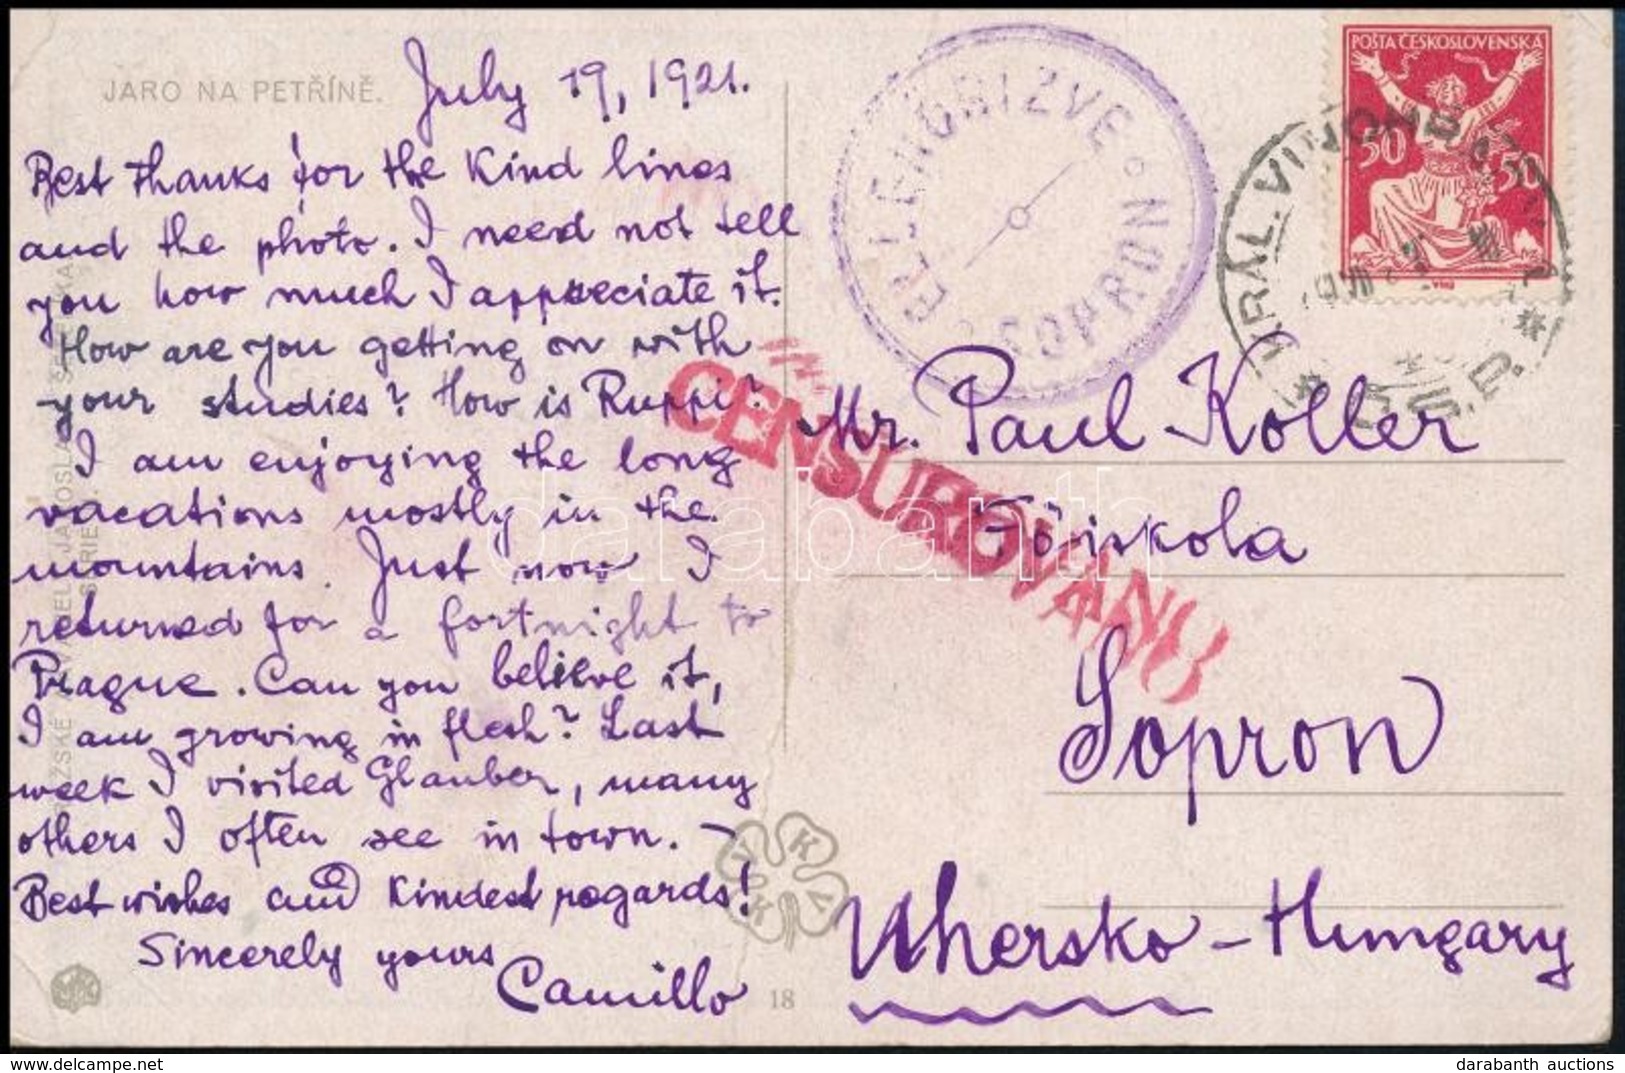 JARO NA PETŘÍNĚ.
July 19, 1921.
Best thanks for the kind lines
and the photo. I need not tell
you how much I appreciate it.
How are you getting on with
your studies? How is Ruppi?
I am enjoying the long
vacations mostly in the
mountains. Just now I
returned for a fortnight to
Prague. Can you believe it,
I am growing in flesh? Last
week I visited Glauber, many
others I often see in town. –
Best wishes and kindest regards!
Sincerely yours
Camillo
18
ELLENŐRIZVE
SOPRON
POŠTA ČESKOSLOVENSKÁ
50 50
CENSUROVÁNO
Mr. Paul Koller
Főiskola
Sopron
Uhersko – Hungary
V K V K
darabanth
darabanth auctions